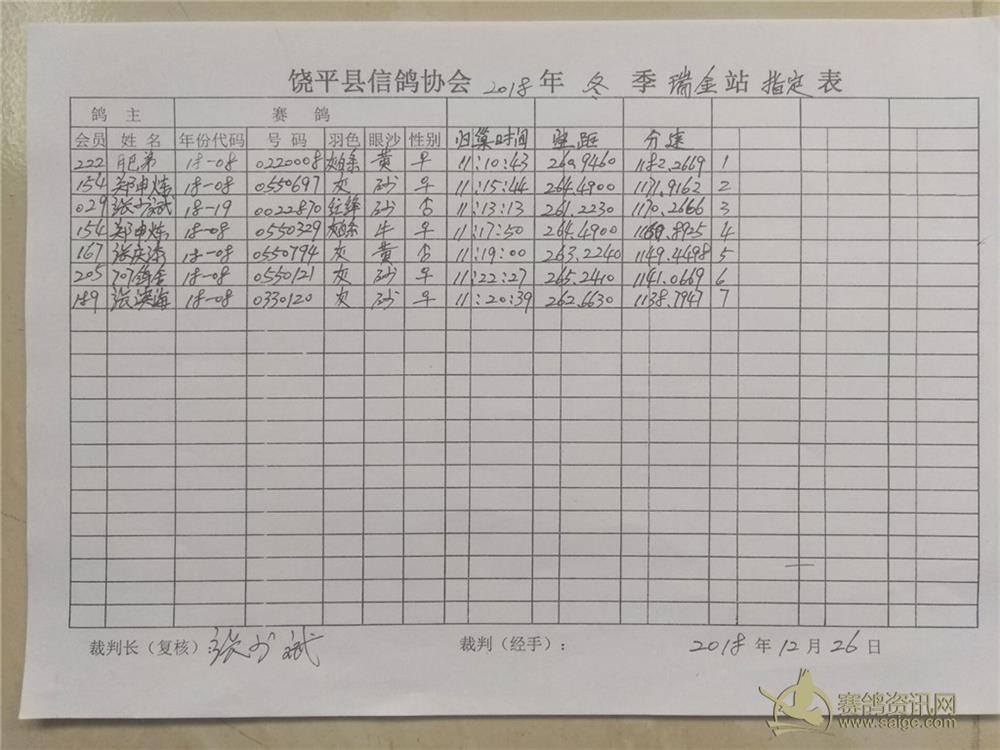 饶平县信鸽协会 2018 年 冬 季 瑞金 站 指定 表
鸽 主 赛 鸽
会员 姓 名 年份代码 号 码 羽色 眼沙 性别 归巢时间 空距 分速
222 18-08 0220008 黄 早 11:10:43 260.9460 1182.2669 1
154 郑申炼 18-08 0550697 灰 沙 早 11:15:44 264.4900 1171.9162 2
029 张少斌 18-19 0022870 红绛 沙 11:13:13 261.2230 1170.2666 3
154 郑申炼 18-08 0550329 牛 早 11:17:50 264.4900 4
167 18-08 0550794 灰 黄 11:19:00 263.2240 1149.4498 5
205 707鸽舍 18-08 0550121 灰 沙 早 11:22:27 265.2410 1141.0669 6
189 张滨海 18-08 0330120 灰 沙 早 11:20:39 262.6630 1138.7947 7
裁判长（复核）: 张少斌 裁判（经手）： 2018 年 12 月 26 日
赛鸽资讯网
www.saigc.com